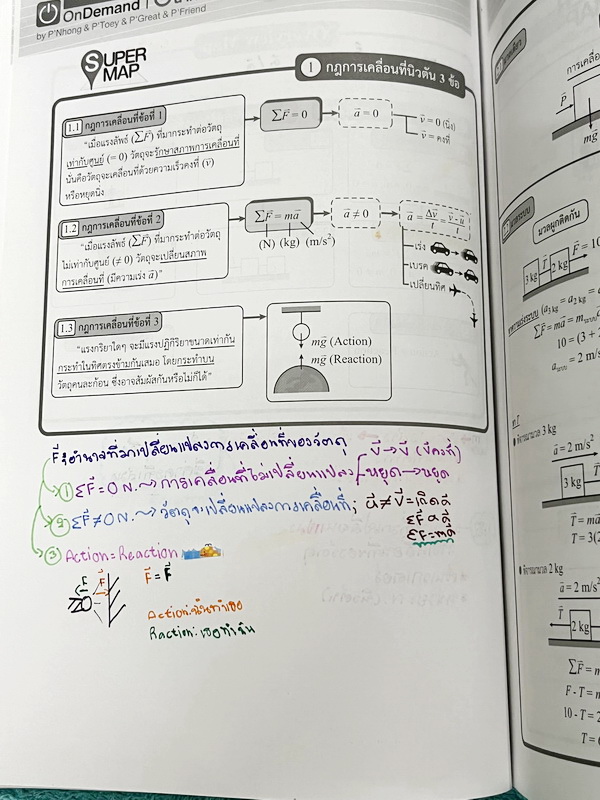 OnDemand
by P'Nhong & P'Toey & P'Great & P'Friend
SUPER
MAP
1 กฎการเคลื่อนที่นิวตัน 3 ข้อ
1.1 กฎการเคลื่อนที่ข้อที่ 1
"เมื่อแรงลัพธ์ (ΣF⃗) ที่มากระทำต่อวัตถุ
เท่ากับศูนย์ (= 0) วัตถุจะรักษาสภาพการเคลื่อนที่
นั่นคือวัตถุจะเคลื่อนที่ด้วยความเร็วคงที่ (v⃗)
หรือหยุดนิ่ง
ΣF⃗ = 0
a⃗ = 0
v⃗ = 0 (นิ่ง)
v⃗ = คงที่
1.2 กฎการเคลื่อนที่ข้อที่ 2
"เมื่อแรงลัพธ์ (ΣF⃗) ที่มากระทำต่อวัตถุ
ไม่เท่ากับศูนย์ (≠ 0) วัตถุจะเปลี่ยนสภาพ
การเคลื่อนที่ (มีความเร่ง a⃗)"
ΣF⃗ = ma⃗
(N) (kg) (m/s²)
a⃗ ≠ 0
a⃗ = Δv⃗/t = v⃗ - u⃗/t
เร่ง
เบรค
เปลี่ยนทิศ
1.3 กฎการเคลื่อนที่ข้อที่ 3
"แรงกริยาใดๆ จะมีแรงปฏิกิริยาขนาดเท่ากัน
กระทำในทิศตรงข้ามกันเสมอ โดยกระทำบน
วัตถุคนละก้อน ซึ่งอาจสัมผัสกันหรือไม่ก็ได้"
mg⃗ (Action)
mg⃗ (Reaction)
F⃗: อำนาจที่มาเปลี่ยนแปลงการเคลื่อนที่ของวัตถุ
① ΣF⃗ = 0 N. → การเคลื่อนที่ไม่เปลี่ยนแปลง
v⃗ → v⃗ (v⃗คงที่)
หยุด → หยุด
② ΣF⃗ ≠ 0 N. → วัตถุจะเปลี่ยนแปลงการเคลื่อนที่ ; u⃗ ≠ v⃗ = เกิด a⃗
ΣF⃗ a a⃗
ΣF⃗ = ma⃗
③ Action = Reaction
F⃗ F⃗
F⃗ = F⃗
Action: ฉันทำเธอ
Raction: เธอทำฉัน
การเคลื่อนที่
P⃗
mg⃗
มวลผูกติดกัน
3 kg T⃗ 2 kg F⃗ = 10
ΣF⃗ = ma⃗ = m
10 = (3 +
= 2 m/s
พิจารณามวล 3 kg
a⃗ = 2 m/s²
3 kg T⃗
T⃗ = ma⃗
T = 3(2
พิจารณามวล 2 kg
a⃗ = 2 m/s²
T⃗ 2 kg
ΣF⃗ = m
F - T = m
10 - T = 2
T = 6